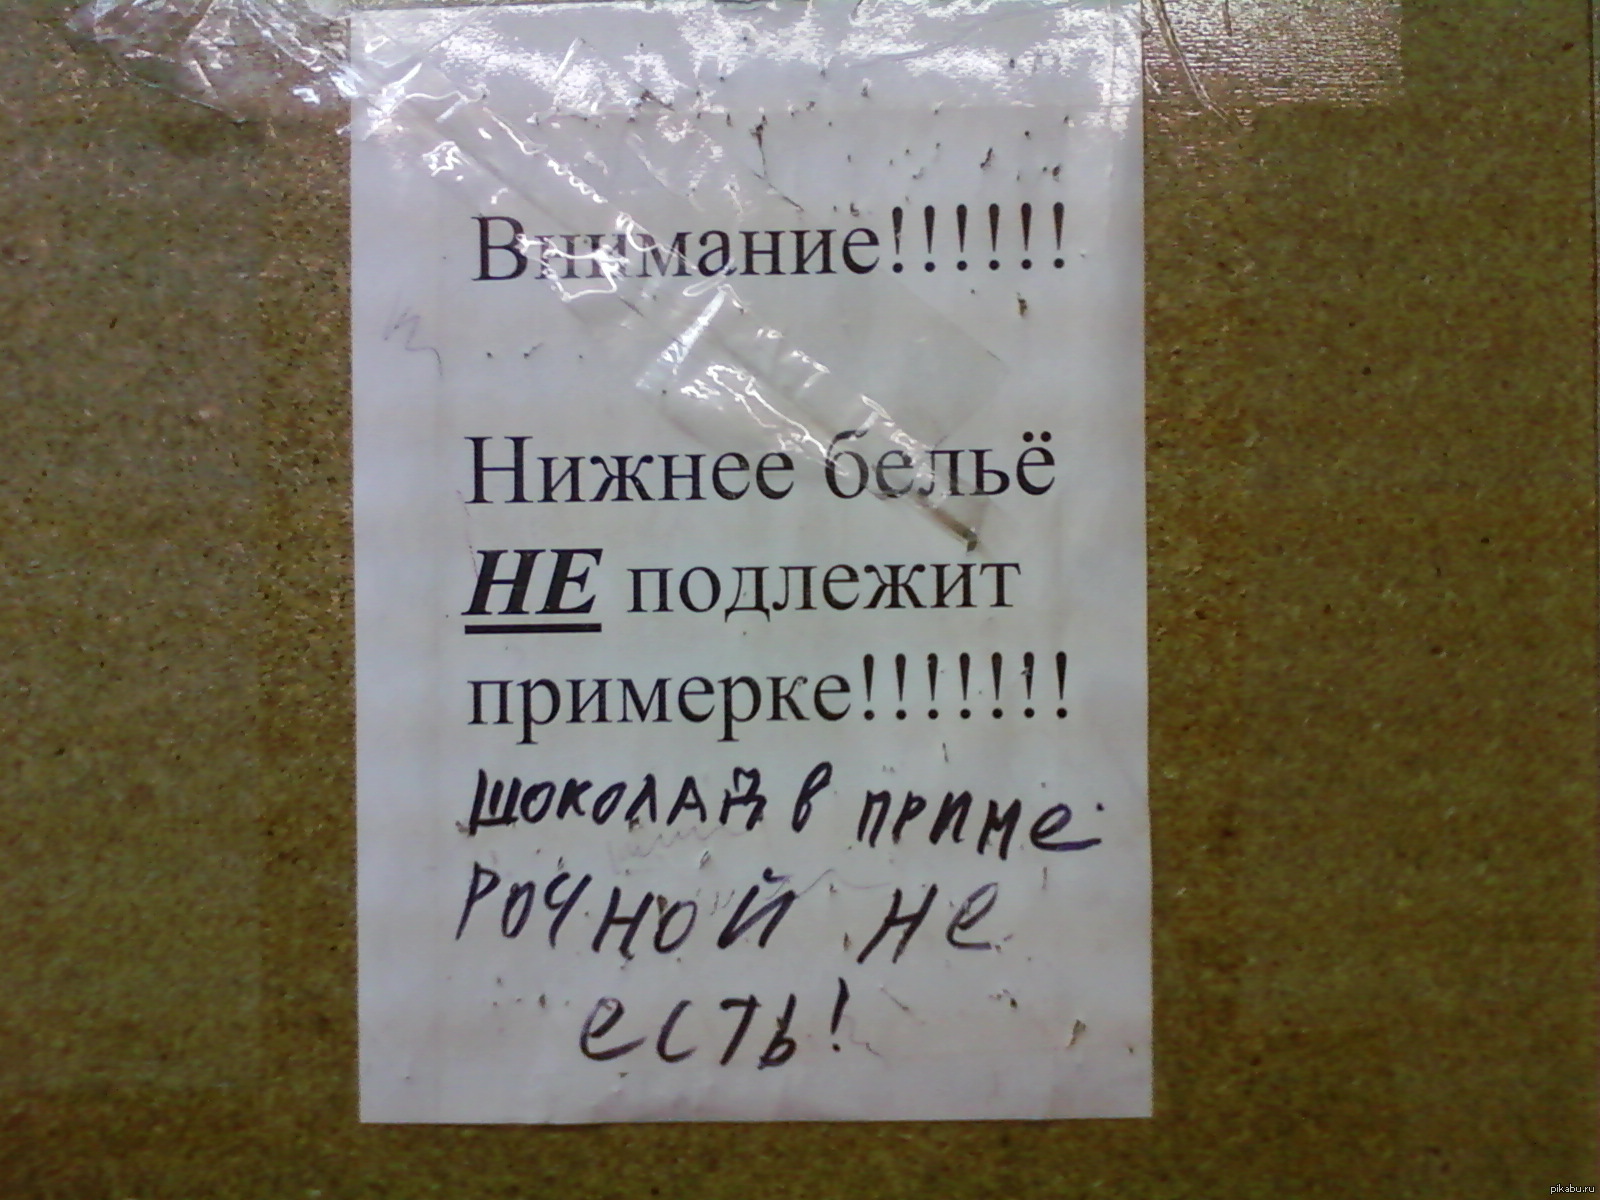 Внимание!!!!!!
Нижнее бельё
НЕ подлежит
примерке!!!!!!!
шоколад в приме
рочной не
есть!
pikabu.ru